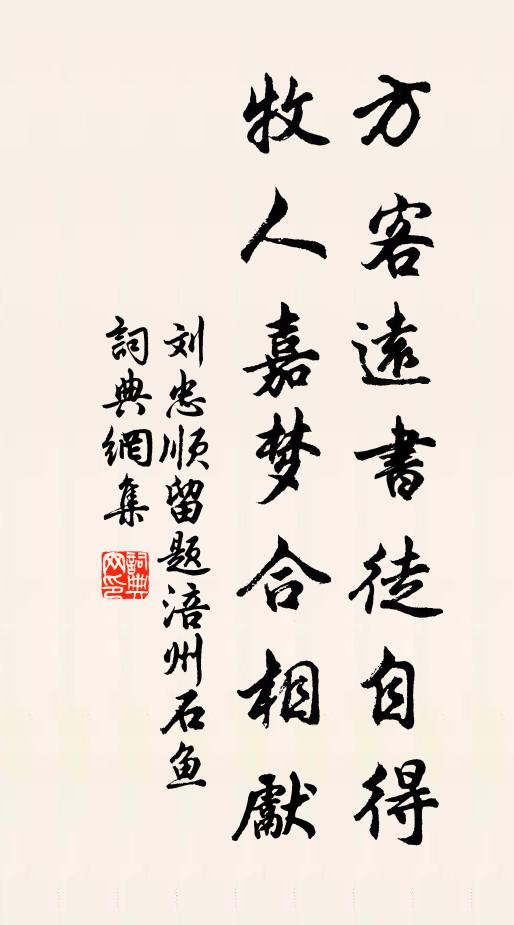 方客遠書徒自得
牧人嘉梦合相獻
刘忠顺留题涪州石鱼
詞典網集
詞典网印